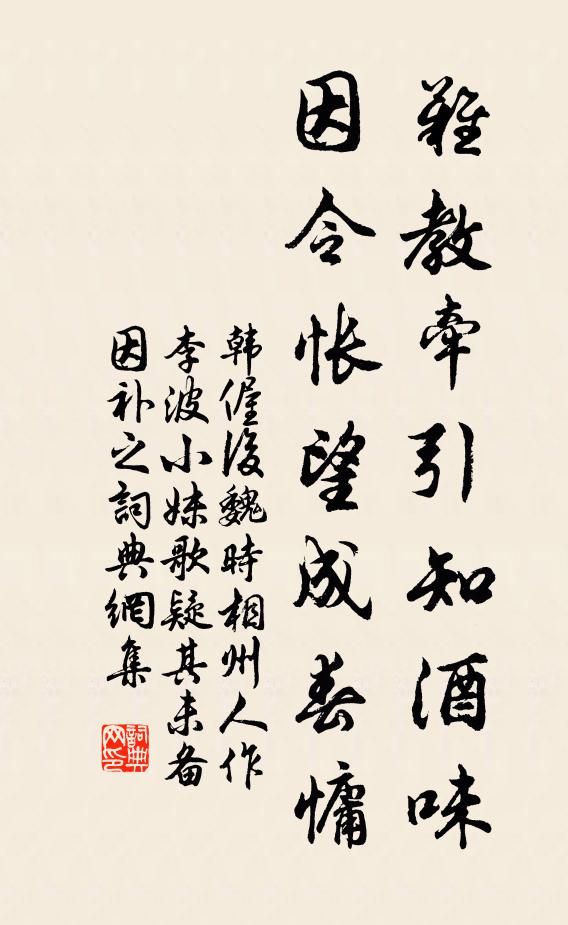 難教牽引知酒味
因令怅望成春慵
韩偓後魏時相州人作
李波小妹歌疑其未备
因补之詞典網集
詞典网印